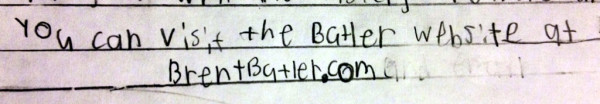 You can visit the Batler website at
BrentBatler.com